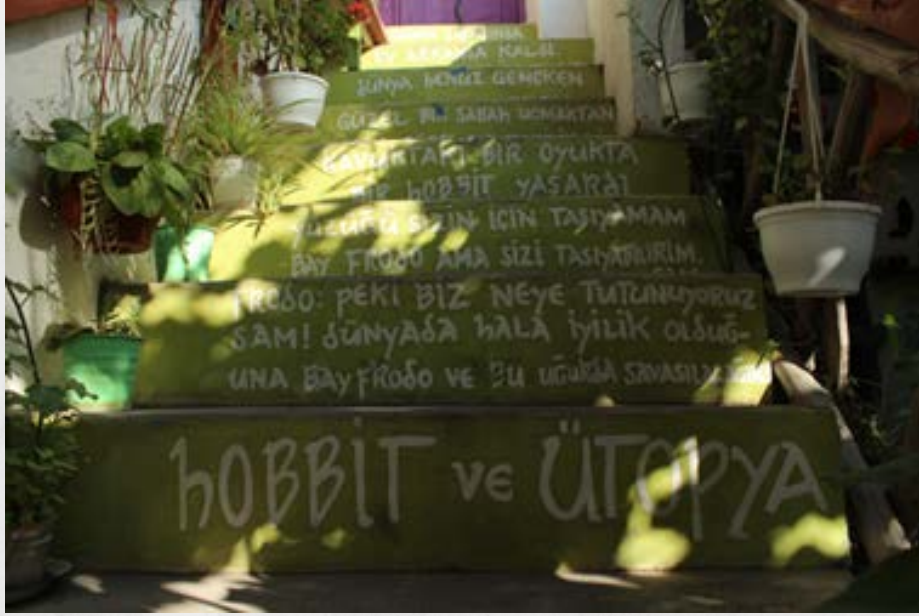 KALDI
DÜNYA HENÜZ GENÇKEN
GÜZEL BİR SABAH UÇMAKTAN
BİR OYUKTA
BİR HOBBİT YAŞARDI
YÜZÜĞÜ SİZİN İÇİN TAŞIYAMAM
BAY FRODO AMA SİZİ TAŞIYABİLİRİM.
FRODO: PEKİ BİZ NEYE TUTUNUYORUZ
SAM! DÜNYADA HALA İYİLİK OLDUĞ-
UNA BAY FRODO VE BU UĞURDA
HOBBİT VE ÜTOPYA